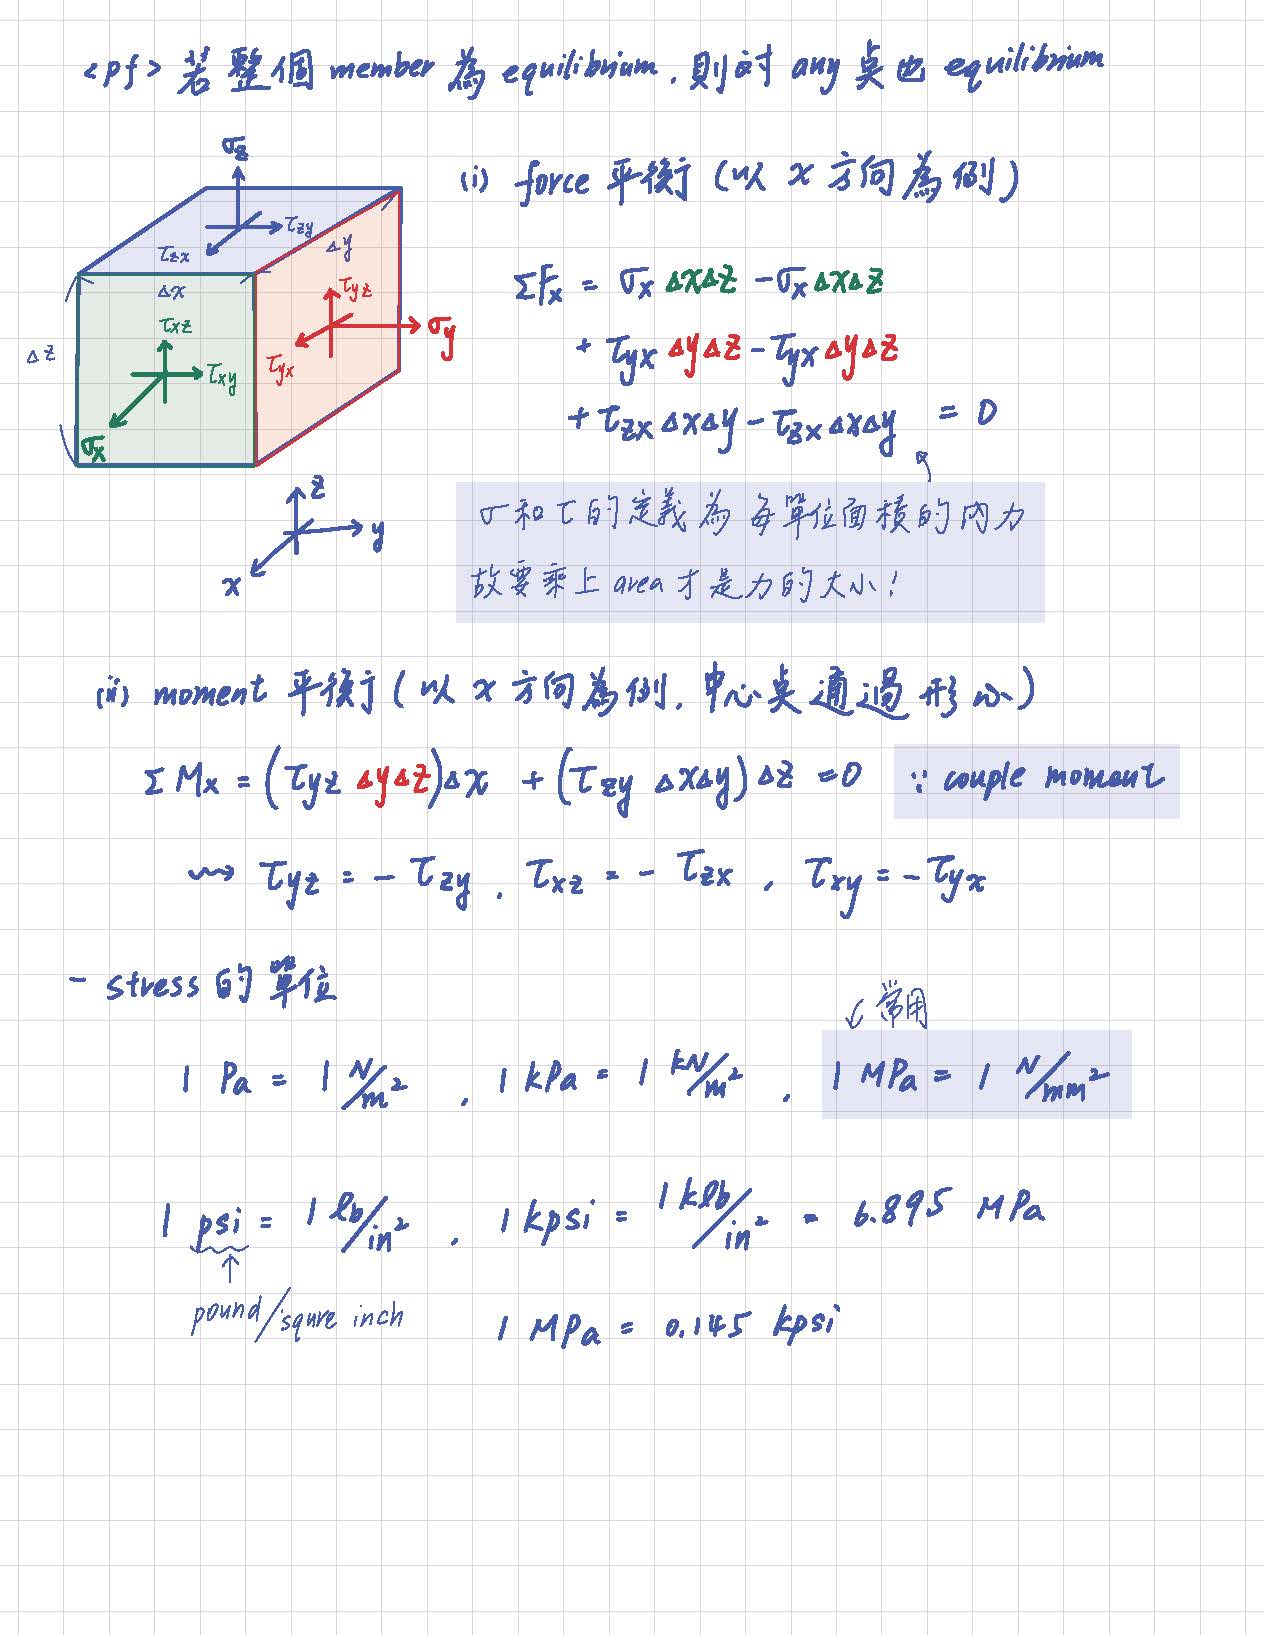 <pf> 若整個 member 為 equilibrium，則對 any 點也 equilibrium
σz
τzy
τzx
Δy
Δx
τyz
τxz
σy
Δz
τyx
τxy
σx
z
y
x
(i) force 平衡 (以 x 方向為例)
ΣFx = σx ΔxΔz - σx ΔxΔz
+ τyx ΔyΔz - τyx ΔyΔz
+ τzx ΔxΔy - τzx ΔxΔy = 0
σ和τ的定義為 每單位面積的內力
故要乘上 area 才是力的大小!
(ii) moment 平衡 (以 x 方向為例，中心點通過形心)
ΣMx = (τyz ΔyΔz)Δx + (τzy ΔxΔy)Δz = 0 ∵ couple moment
⇝ τyz = - τzy , τxz = - τzx , τxy = - τyx
- stress 的單位
常用
1 Pa = 1 N/m² , 1 kPa = 1 kN/m² , 1 MPa = 1 N/mm²
1 psi = 1 lb/in² , 1 kpsi = 1 klb/in² = 6.895 MPa
pound/squre inch
1 MPa = 0.145 kpsi